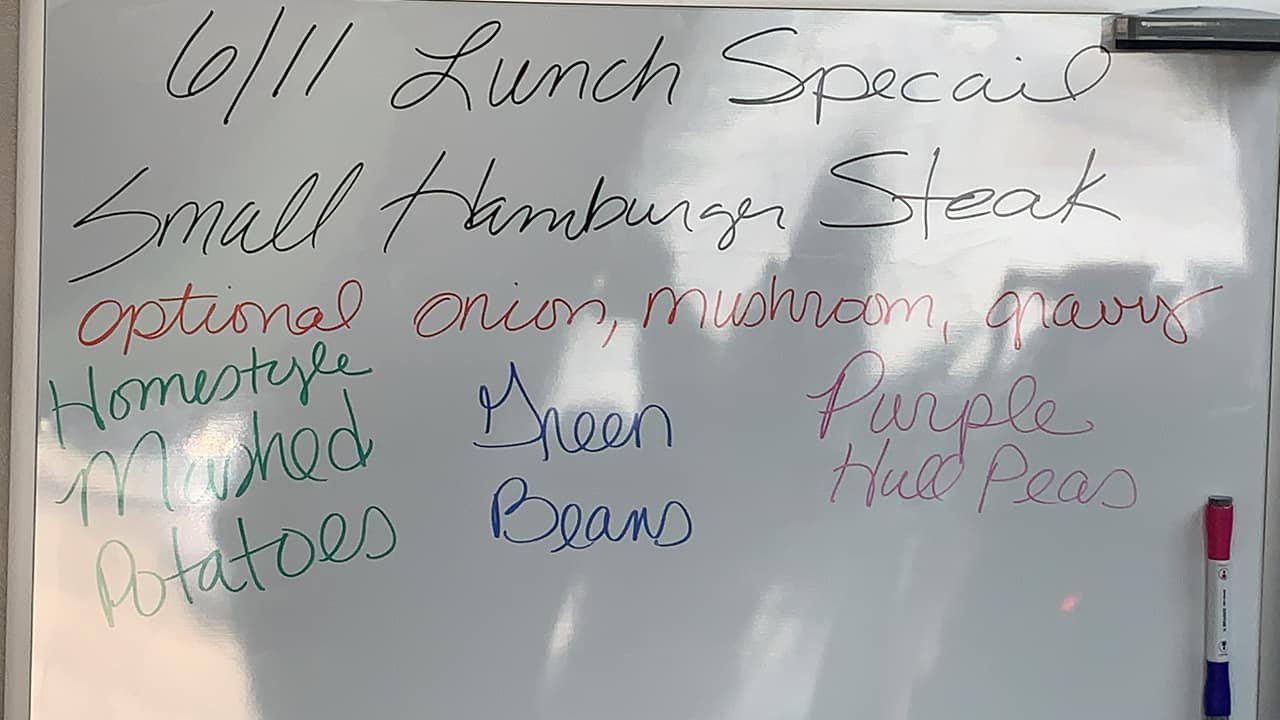 6/11 Lunch Specail
Small Hamburger Steak
optional onion, mushroom, gravy
Homestyle
Mashed
Potatoes
Green
Beans
Purple
Hull Peas